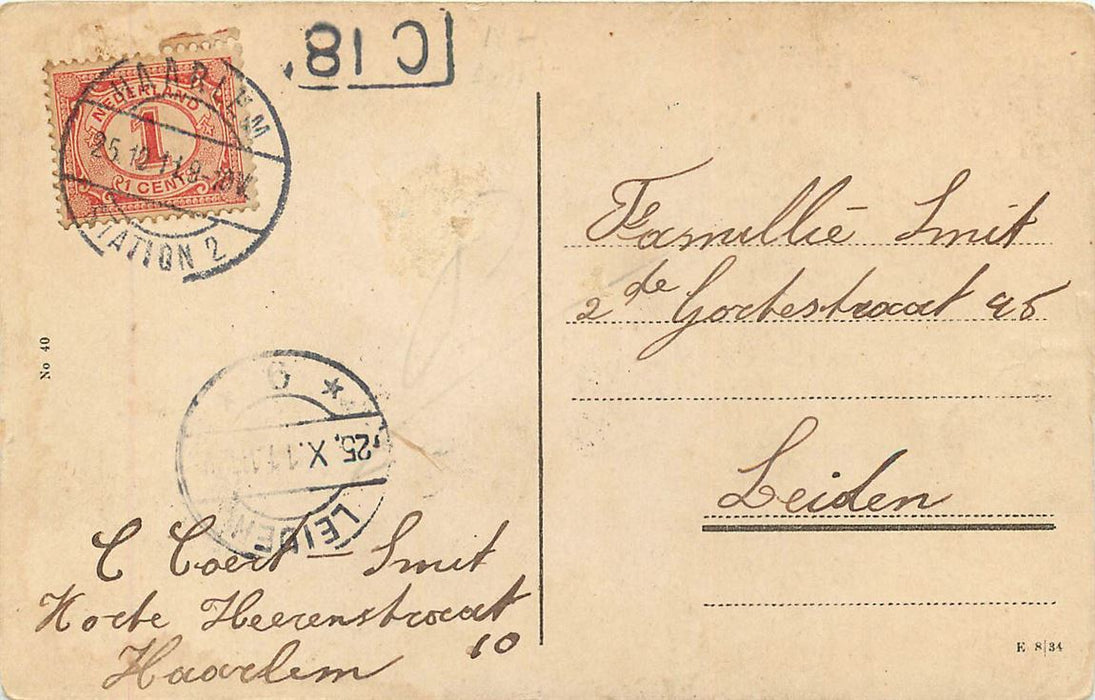 C 18
HAARLEM
NEDERLAND
1
1 CENT
25.12.11.9-10V
STATION 2
Famillie Smit
2de Gortestraat 46
Leiden
No 40
6
25.X.11
LEIDEN
C Coert-Smit
Korte Heerenstraat
10
Haarlem
E 8|34